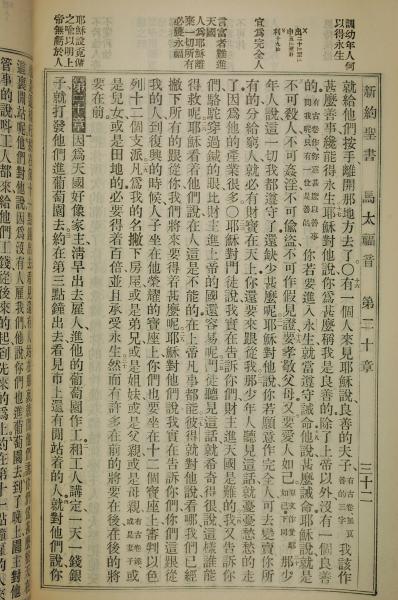 新約聖書 馬太福音 第二十章 三十二
訓幼年人何
以得永生
宜為完全人
言富者難進
天國
人為耶穌離
棄一切所有
必獲永福
耶穌設雇傭
之喻以明上
帝無虧於人
就給他們按手離開那地方去了〇有一個人來見耶穌說良善的夫子有古卷無良善的三字我該作
甚麼善事纔能得永生耶穌對他說你為甚麼稱我是良善的除了上帝以外沒有一個良善
的有古卷作你為甚麼以善事問我呢只有一位是善的你若要進入永生就當遵守誡命他說甚麼誡命耶穌說就是
不可殺人不可姦淫不可偷盜不可作假見證要孝敬父母又要愛人如己那少
年人說這一切我都遵守了還缺少甚麼呢耶穌對他說你若願意作完全人可去變賣你所
有的分給窮人就必有財寶在天上你還要來跟從我那少年人聽見這話就憂憂愁愁的走
了因為他的產業很多〇耶穌對門徒說我實在告訴你們財主進天國是難的我又告訴你
們駱駝穿過鍼的眼比財主進上帝的國還容易呢門徒聽見這話就希奇得很說這樣誰能
得救呢耶穌看着他們說在人這是不能的在上帝凡事都能彼得就對他說看哪我們已經
撇下所有的跟從你我們將來要得着甚麼呢耶穌對他們說我實在告訴你們你們這跟從
我的人到復興的時候人子坐在他榮耀的寶座上你們也要坐在十二個寶座上審判以色
列十二個支派凡為我的名撇下房屋或是弟兄或是姐妹或是父親或是母親有古卷添或是妻子或
是兒女或是田地的必要得着百倍並且承受永生然而有許多在前的將要在後在後的將
要在前
第二十章因為天國好像家主清早出去雇人進他的葡萄園作工和工人講定一天一錢銀
子就打發他們進葡萄園去約在第三點鐘出去看見市上還有閒站着的人就對他們說你
這裏閒站呢他們對他說因為沒有人雇我們他說你們也進葡萄園去到了晚上園主對他
管事的說叫工人都來給他們工錢從後來的起到先來的為止約在第十一點雇的人來